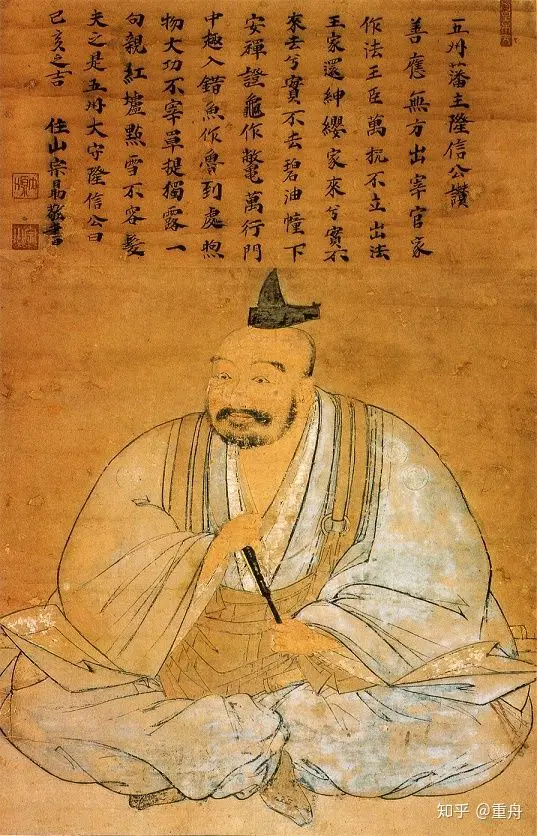 五州藩主隆信公讚
善應無方出宰官家
作法王臣萬抗不立出法
王家還紳纓家來兮實不
來去兮實不去碧油幢下
安禪證龜作鼈萬行門
中趣入錯魚作魯到處煦
物大功不宰單提獨露一
句親紅爐點雪不容髮
夫之是五州大守隆信公曰
己亥之吉 住山宗易 書
知乎 @重舟